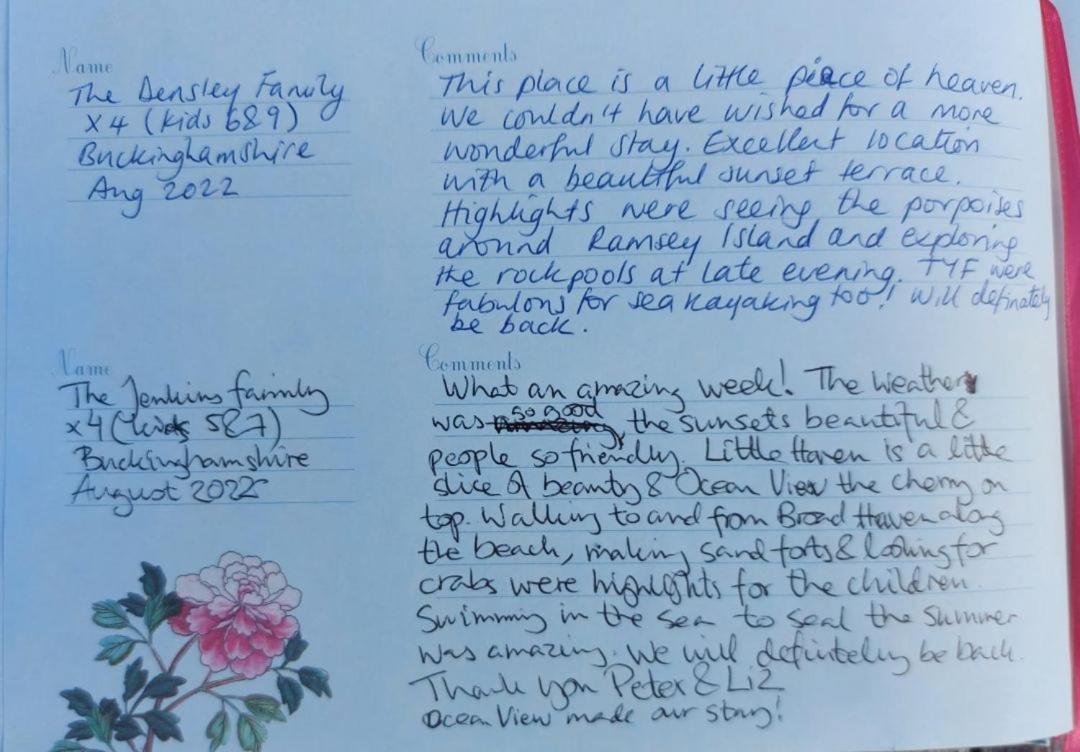 Name
The Densley Family
x4 (kids 6&9)
Buckinghamshire
Aug 2022
Comments
This place is a little piece of heaven.
We couldn't have wished for a more
wonderful stay. Excellent location
with a beautiful sunset terrace.
Highlights were seeing the porpoises
around Ramsey Island and exploring
the rockpools at late evening. TYF were
fabulous for sea kayaking too! Will definately
be back.
Name
The Jenkins family
x4 (kids 5&7)
Buckinghamshire
August 2022
Comments
What an amazing week! The weather
was so good, the sunsets beautiful &
people so friendly. Little Haven is a little
slice of beauty & Ocean View the cherry on
top. Walking to and from Broad Haven along
the beach, making sand forts & looking for
crabs were highlights for the children.
Swimming in the sea to seal the summer
was amazing. We will definitely be back.
Thank you Peter & Liz
Ocean View made our stay!